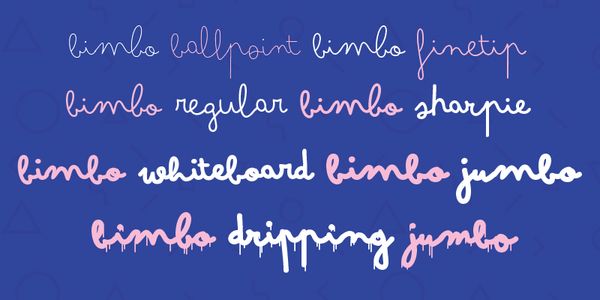 bimbo ballpoint bimbo finetip
bimbo regular bimbo sharpie
bimbo whiteboard bimbo jumbo
bimbo dripping jumbo